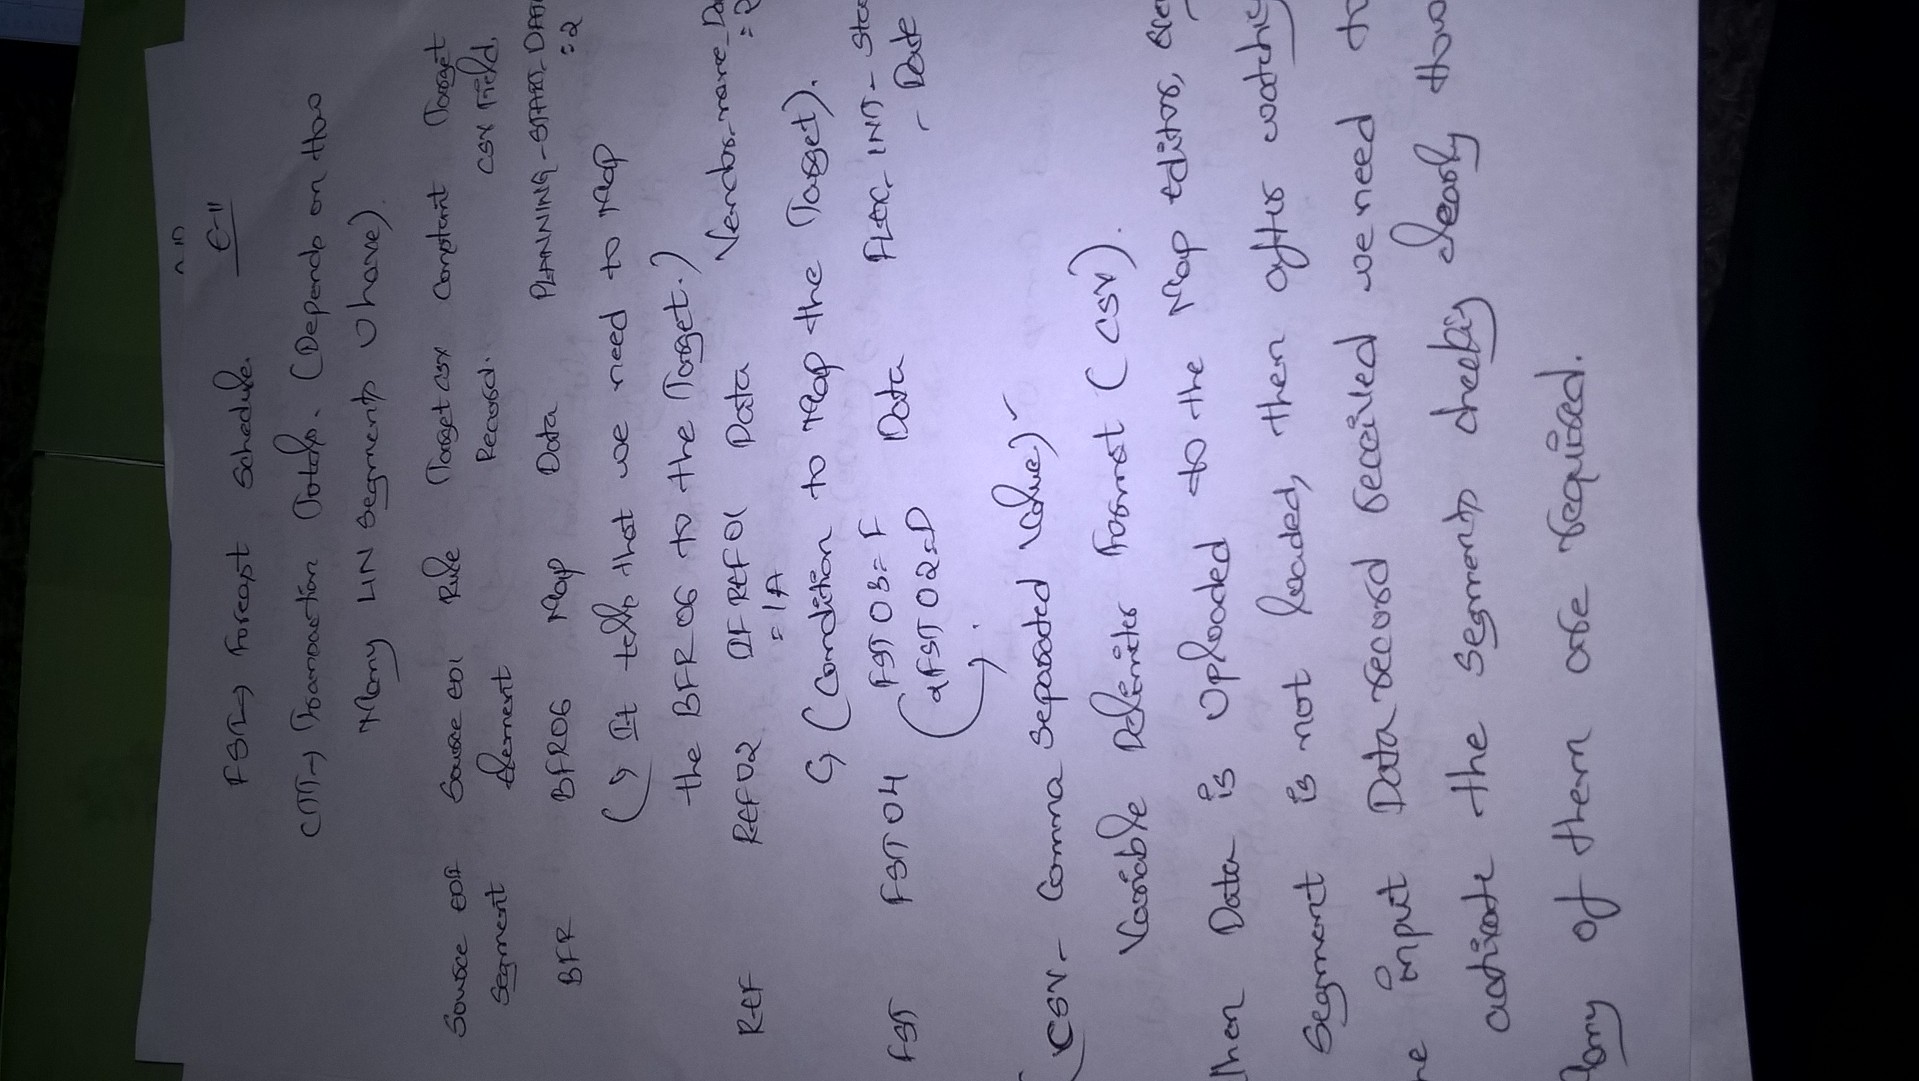 E-11
FST → Forecast Schedule.
CTT → Transaction Totals. (Depends on how
Many LIN Segments U have).
Source EDI Source EDI Rule Target csv Constant Target
Segment Element Record. CSV Field.
BFR BFR06 Map Data PLANNING-START-DAT
=2
(↳ It tells that we need to Map
the BFR06 to the Target.)
REF REF02 IF REF01 Data Vendor-name-Da
= IA
↳ (Condition to Map the Target).
FST FST04 FST03=F Data FLEX-INT-Sta
(&FST02=D - Date
(CSV - Comma Separated Value)
Variable Delimiter Format (CSV).
When Data is Uploaded to the Map editor,
Segment is not loaded, then after watching
the input Data record Received we need to
activate the Segments checking clearly how
Many of them are required.